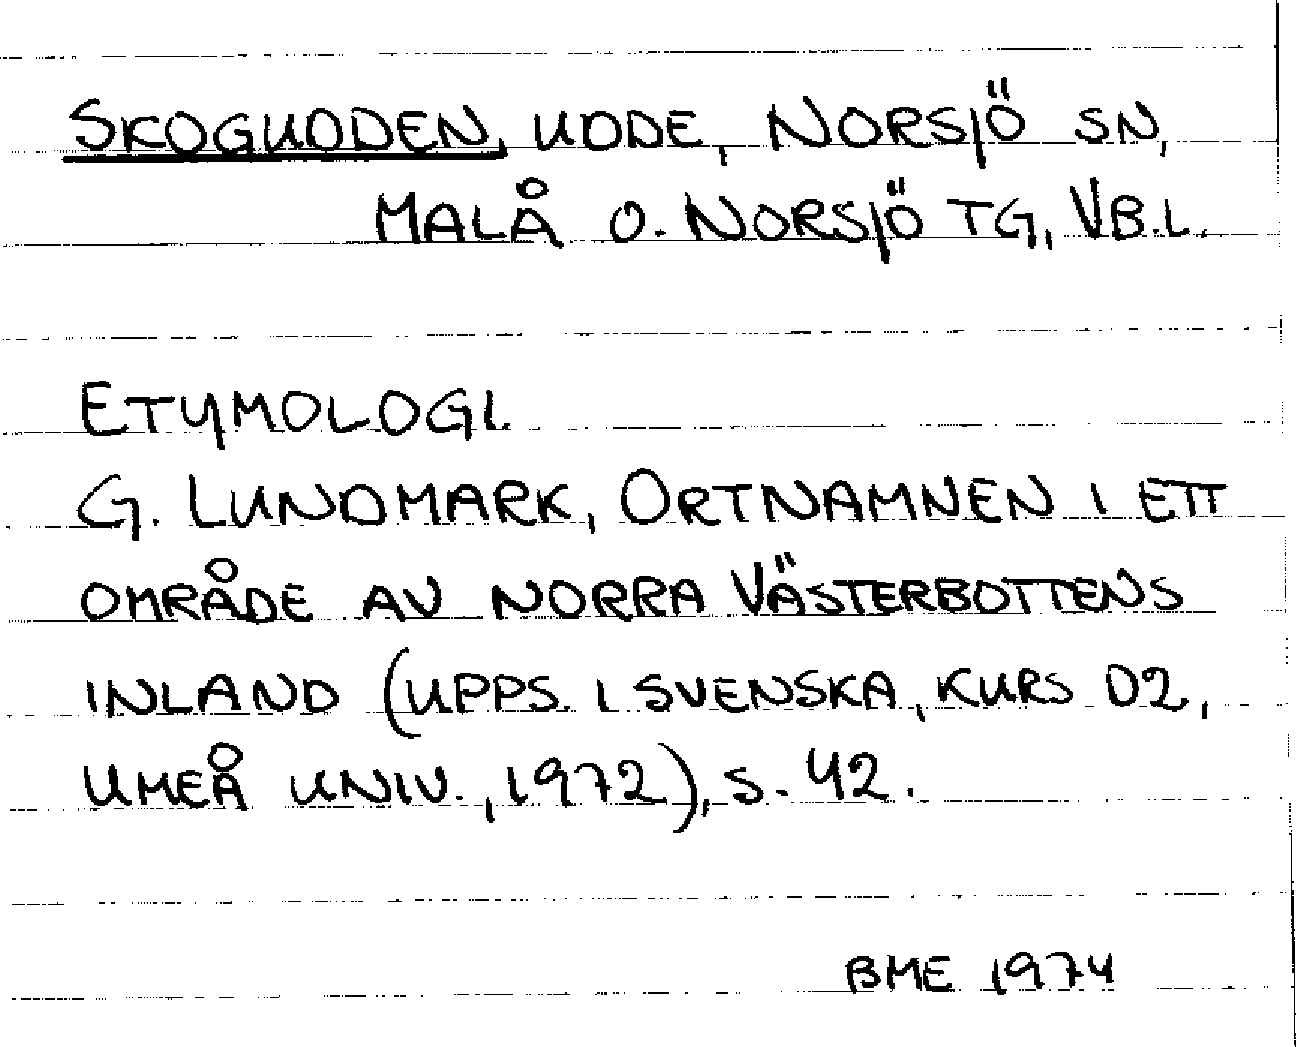 SKOGUDDEN, UDDE, NORSJÖ SN,
MALÅ O. NORSJÖ TG, VB.L.
ETYMOLOGI.
G. LUNDMARK, ORTNAMNEN I ETT
OMRÅDE AV NORRA VÄSTERBOTTENS
INLAND (UPPS. I SVENSKA, KURS D2,
UMEÅ UNIV., 1972), S. 42.
BME 1974